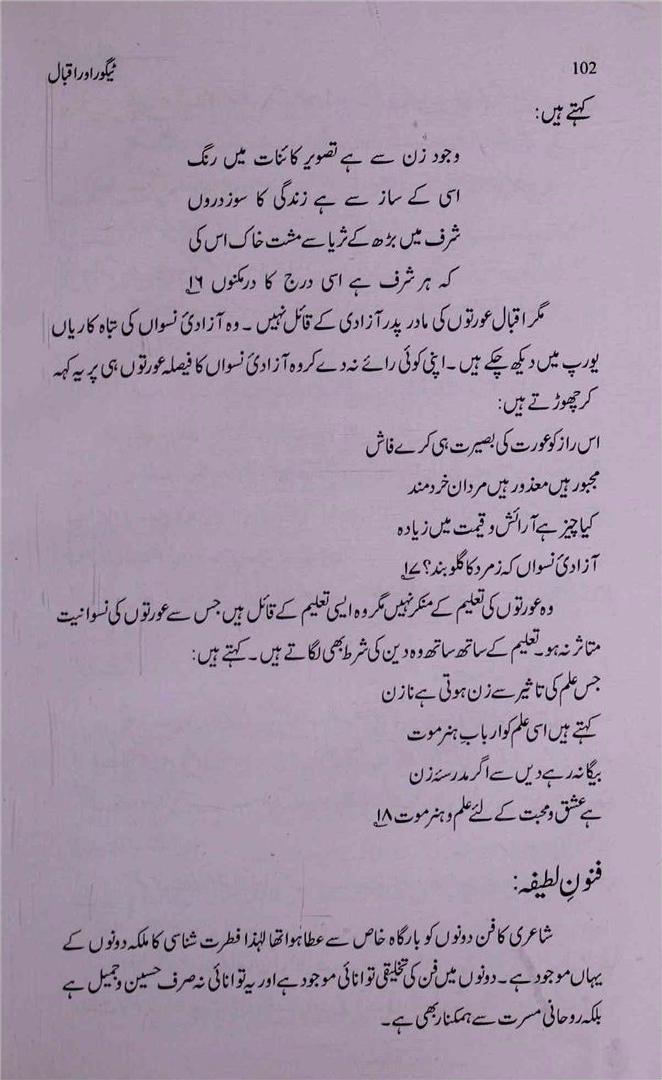 102
ٹیگور اور اقبال
کہتے ہیں:
وجود زن سے ہے تصویر کائنات میں رنگ
اسی کے ساز سے ہے زندگی کا سوز دروں
شرف میں بڑھ کے ثریا سے مشت خاک اس کی
کہ ہر شرف ہے اسی درج کا در مکنوں ۱۶
مگر اقبال عورتوں کی مادر پدر آزادی کے قائل نہیں ۔ وہ آزادیٔ نسواں کی تباہ کاریاں
یورپ میں دیکھ چکے ہیں ۔ اپنی کوئی رائے نہ دے کر وہ آزادیٔ نسواں کا فیصلہ عورتوں ہی پر یہ کہہ
کر چھوڑتے ہیں:
اس راز کو عورت کی بصیرت ہی کرے فاش
مجبور ہیں معذور ہیں مردان خرد مند
کیا چیز ہے آرائش و قیمت میں زیادہ
آزادیٔ نسواں کہ زمرد کا گلو بند؟ ۱۷
وہ عورتوں کی تعلیم کے منکر نہیں مگر وہ ایسی تعلیم کے قائل ہیں جس سے عورتوں کی نسوانیت
متاثر نہ ہو۔ تعلیم کے ساتھ ساتھ وہ دین کی شرط بھی لگاتے ہیں ۔ کہتے ہیں:
جس علم کی تاثیر سے زن ہوتی ہے نازن
کہتے ہیں اسی علم کو اربابِ ہنر موت
بیگانہ رہے دیں سے اگر مدرسۂ زن
ہے عشق و محبت کے لئے علم و ہنر موت ۱۸
فنونِ لطیفہ:
شاعری کا فن دونوں کو بارگاہ خاص سے عطا ہوا تھا لہٰذا فطرت شناسی کا ملکہ دونوں کے
یہاں موجود ہے۔ دونوں میں فن کی تخلیقی توانائی موجود ہے اور یہ توانائی نہ صرف حسین و جمیل ہے
بلکہ روحانی مسرت سے ہمکنار بھی ہے۔